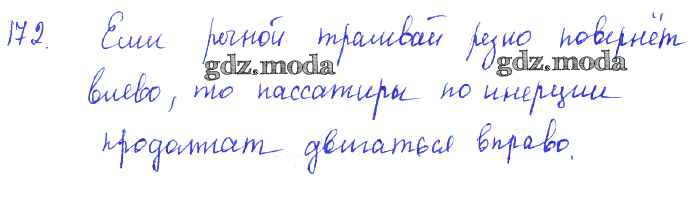 172. Если речной трамвай резко повернёт
gdz.moda gdz.moda
влево, то пассажиры по инерции
продолжат двигаться вправо.